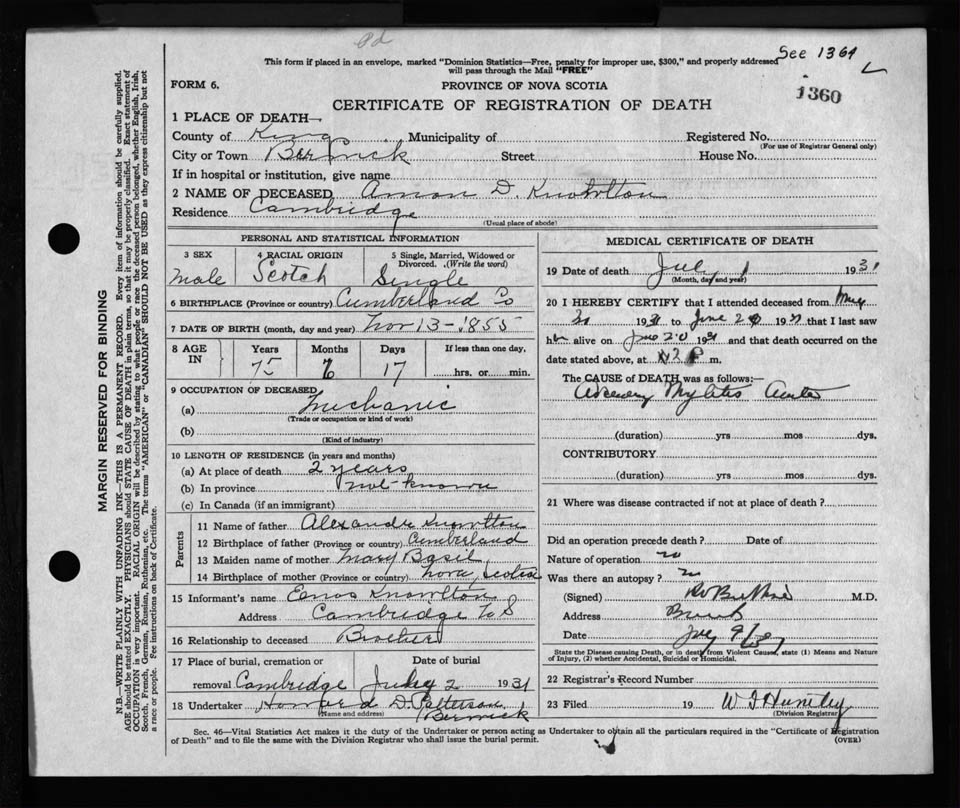 Pd
See 1364
This form if placed in an envelope, marked "Dominion Statistics—Free, penalty for improper use, $300," and properly addressed
will pass through the Mail "FREE"
FORM 6.
PROVINCE OF NOVA SCOTIA
1360
CERTIFICATE OF REGISTRATION OF DEATH
1 PLACE OF DEATH—
County of Kings Municipality of Registered No.
(For use of Registrar General only)
City or Town Berwick Street House No.
If in hospital or institution, give name
2 NAME OF DECEASED Amon D. Knowlton
Residence Cambridge
(Usual place of abode)
PERSONAL AND STATISTICAL INFORMATION
3 SEX 4 RACIAL ORIGIN 5 Single, Married, Widowed or
Divorced. (Write the word)
Male Scotch Single
6 BIRTHPLACE (Province or country) Cumberland Co
7 DATE OF BIRTH (month, day and year) Nov 13 - 1855
8 AGE IN Years Months Days If less than one day,
75 17 hrs. or min.
9 OCCUPATION OF DECEASED
(a) Mechanic
(Trade or occupation or kind of work)
(b)
(Kind of industry)
10 LENGTH OF RESIDENCE (in years and months)
(a) At place of death 2 years
(b) In province not known
(c) In Canada (if an immigrant)
Parents
11 Name of father Alexandre Knowlton
12 Birthplace of father (Province or country) Cumberland
13 Maiden name of mother Mary Basil
14 Birthplace of mother (Province or country) Nova Scotia
15 Informant's name Knowlton
Address Cambridge N S
16 Relationship to deceased Brother
17 Place of burial, cremation or Date of burial
removal Cambridge July 2 1931
18 Undertaker Howard D. Patterson
(Name and address) Berwick
MEDICAL CERTIFICATE OF DEATH
19 Date of death July 1 1931
(Month, day and year)
20 I HEREBY CERTIFY that I attended deceased from May
1931 to June 20 1931 that I last saw
him alive on June 20 1931 and that death occurred on the
date stated above, at P m.
The CAUSE of DEATH was as follows:—
(duration) yrs mos dys.
CONTRIBUTORY
(duration) yrs mos dys.
21 Where was disease contracted if not at place of death?
Did an operation precede death? Date of
Nature of operation no
Was there an autopsy? no
(Signed) M.D.
Address
Date
State the Disease causing Death, or in death from Violent Causes, state (1) Means and Nature
of Injury, (2) whether Accidental, Suicidal or Homicidal.
22 Registrar's Record Number
23 Filed 19 W T Huntley
(Division Registrar)
Sec. 46—Vital Statistics Act makes it the duty of the Undertaker or person acting as Undertaker to obtain all the particulars required in the "Certificate of Registration
of Death" and to file the same with the Division Registrar who shall issue the burial permit. (OVER)
MARGIN RESERVED FOR BINDING
N.B.—WRITE PLAINLY WITH UNFADING INK—THIS IS A PERMANENT RECORD. Every item of information should be carefully supplied.
AGE should be stated EXACTLY. PHYSICIANS should STATE CAUSE OF DEATH in plain terms, so that it may be properly classified. Exact statement of
OCCUPATION is very important. RACIAL ORIGIN will be described by stating to what people or race the deceased person belonged, whether English, Irish,
Scotch, French, German, Russian, Ruthenian, etc. The terms "AMERICAN" or "CANADIAN" SHOULD NOT BE USED as they express citizenship but not
a race or people. See instructions on back of Certificate.